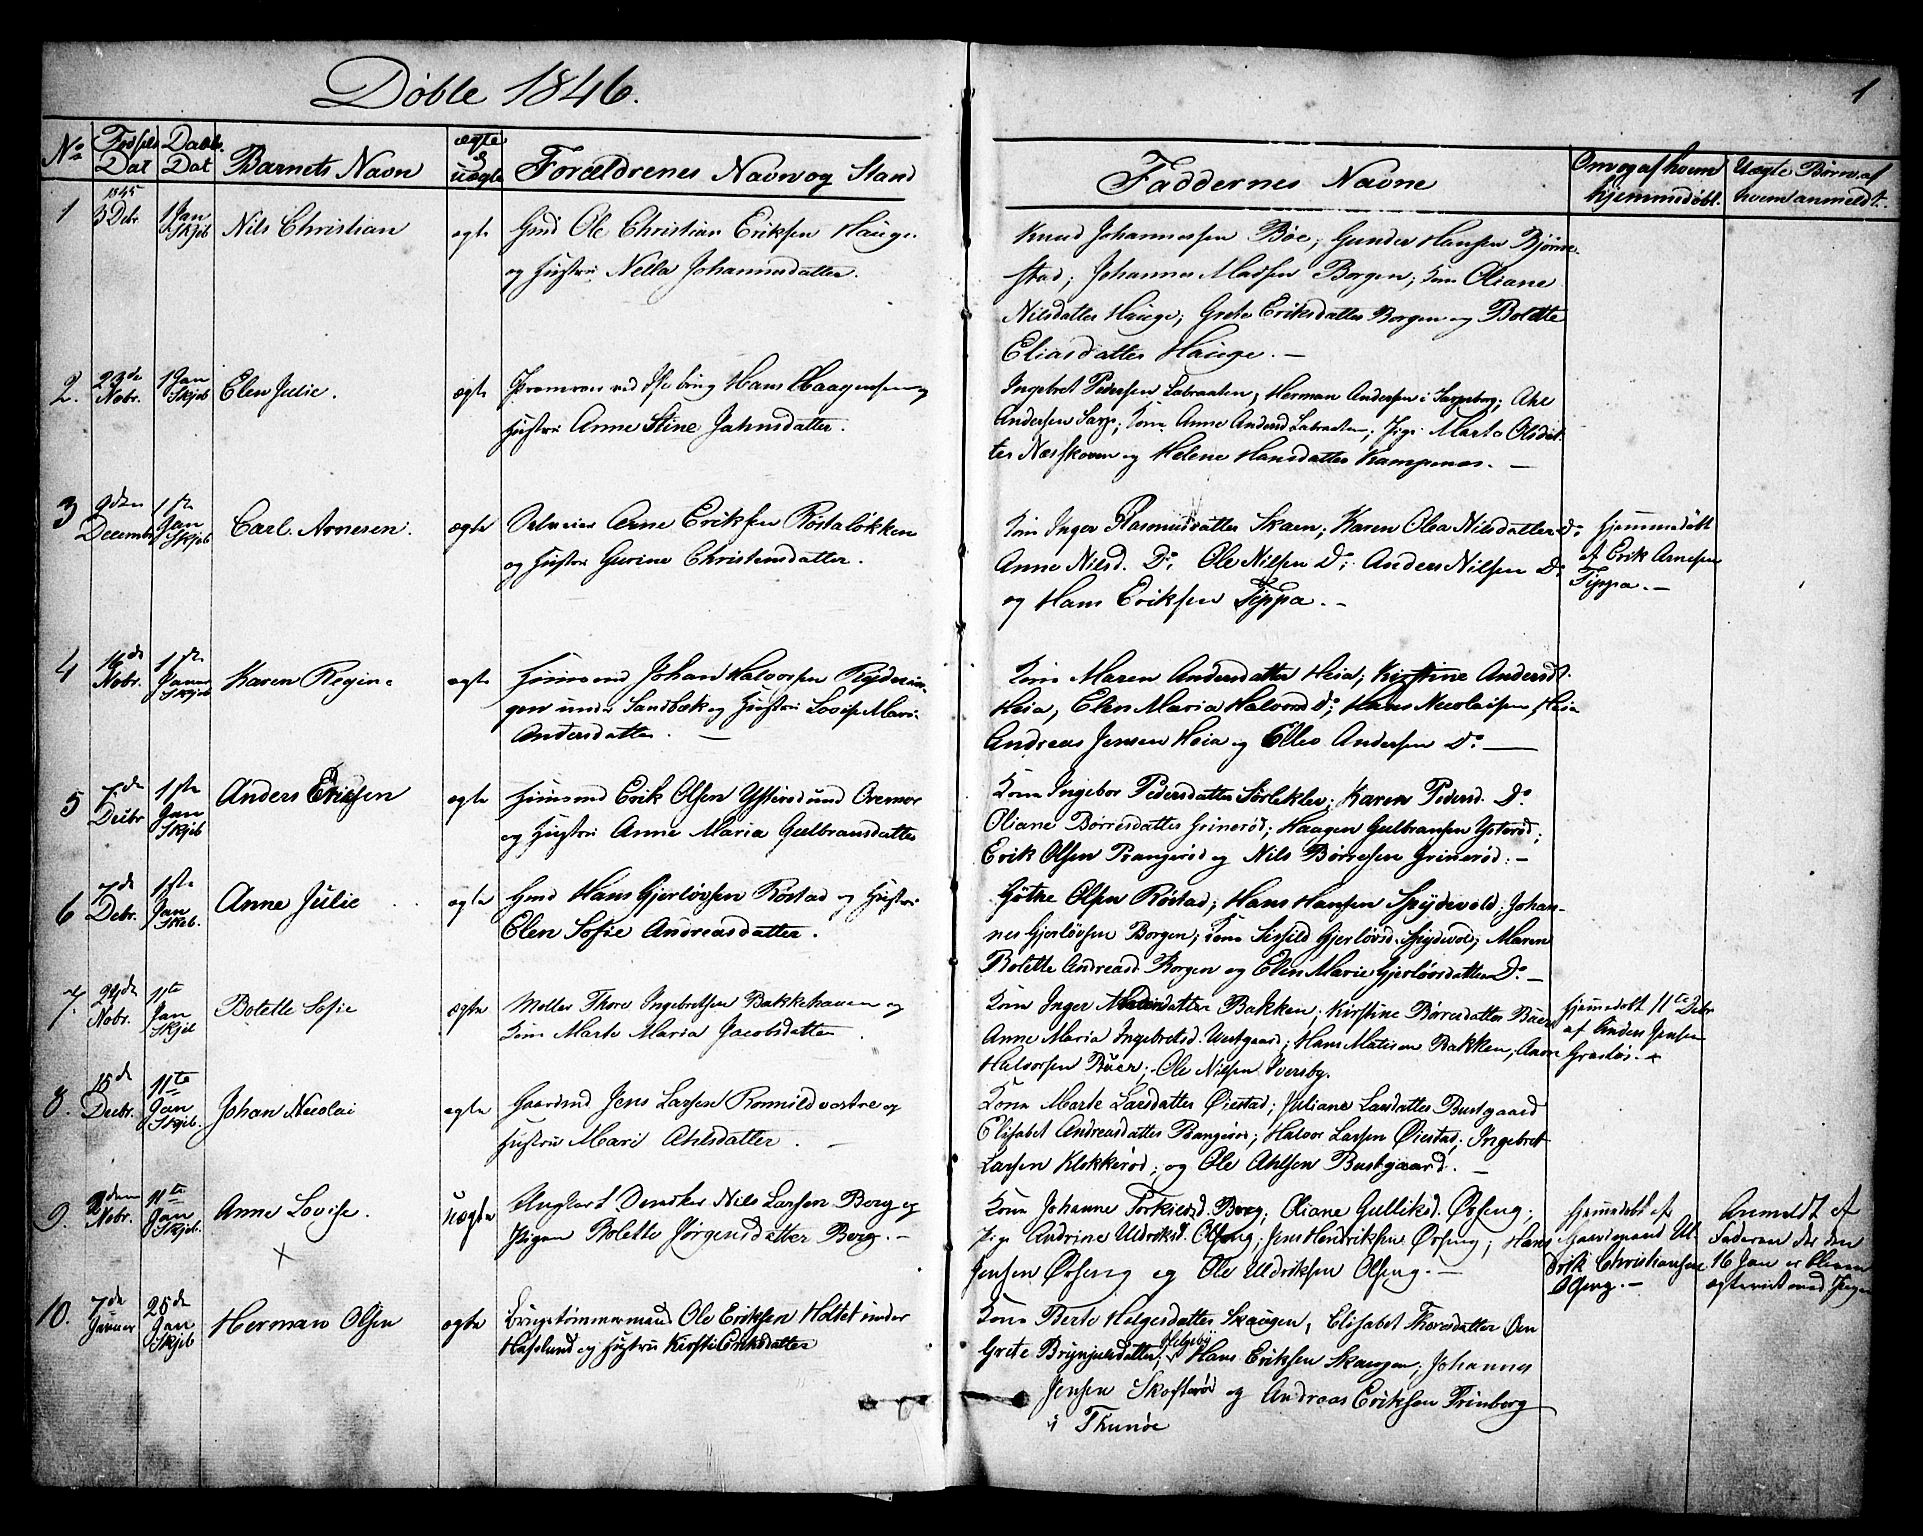 Døbte 1846.
1
No
Fødsels Dat
Daabs Dat
Barnets Navn
ægte & uægte
Forældrenes Navn og Stand
Faddernes Navne
Om og af hvem hjemmedøbt.
Uægte Børn af hvem anmeldt.
1
1845
3 Debr.
1 Jan Skjeb
Nils Christian
ægte
Gmd Ole Christian Eriksen Hauge
og Hustru Nella Johannesdatter.
Knud Johannessen Bøe; Gunder Hansen Bjørne-
stad; Johannes Madsen Borgen; Kone Oliane
Nilsdatter Hauge; Grete Eriksdatter Borgen og Bolette
Eliasdatter Hauge. —
2.
23de Nobr.
1 Jan Skjeb
Elen Julie.
ægte
Hans Haagensen og
Hustru Anne Stine Jahnsdatter.
Ingebret Pedersen Labraaten; Herman Andersen i Sarpsborg; Ahl
Andersen Sarp; Kone Anne Andersd Labraaten; Pige Marte Olsdat-
ter Næsskoven og Helene Hansdatter Kampenes. —
3
9den Decembr
1ste Jan Skjeb
Carl Arnesen.
ægte
Arne Eriksen Røstaløkken
og Hustru Gurine Christensdatter.
Kone Inger Rasmusdatter Skaen; Karen Olea Nilsdatter Do
Anne Nilsd. Do; Ole Nilsen Do; Anders Nilsen Do;
og Hans Eriksen Tippa. —
Hjemmedøbt
af Erik Arnesen
Tippa. —
4
16de Nobr.
1ste Januar Skjeb
Karen Regine
ægte
Huusmd Johan Halvorsen Rydnin-
gen under Sandbæk og Hustru Lovise Marie
Andersdatter. —
Kone Maren Andersdatter Heia; Kirstine Andersd.
Heia; Elen Maria Halvorsd Do; Hans Nicolaisen Heia
Andreas Jensen Heia og Ellev Andersen Do. —
5
7de Decbr
1ste Jan Skjeb
Anders Eriksen
ægte
Huusmd Erik Olsen Ysterød und
og Hustru Anne Maria Gulbransdatter
Kone Ingebor Pedersdatter Sørlekler; Karen Pedersd. Do
Oliane Børresdatter Grinerød; Haagen Gulbransen Ysterød;
Erik Olsen Bangerød og Nils Børresen Grinerød. —
6
7de Debr.
1ste Jan Skeb.
Anne Julie
ægte
Gmd Hans Gjerløvsen Røstad og Hustru
Elen Sofie Andreasdatter.
Gøthe Olsen Røstad; Hans Hansen Spydevold; Johan-
nes Gjerløvsen Borgen; Kone Sissild Gjerløvsd. Spydevol; Maren
Bolette Andreasd. Borgen og Elen Marie Gjerløvsdatter Do. —
7.
24de Nobr.
11te Jan Skjeb
Bolette Sofie
ægte
Møller Thore Ingebretsen Bakkehaven og
Kone Marte Maria Jacobsdatter
Kone Inger Madsdatter Bakken; Kirstine Børresdatter Buer
Anne Maria Ingebretsd. Westgaard; Hans Matisen Bakken; Aron
Halvorsen Buer; Ole Nilsen Iversby.
Hjemmedøbt 11te Debr
af Anders Jensen
Græsløs. —
8.
15de Decbr.
11te Jan Skjeb.
Johan Nicolai
ægte
Gaardmd Jens Larsen Romild vestre og
Hustru Mari Ahlsdatter. —
Kone Marte Larsdatter Øiestad; Juliane Larsdatter Bustgaard
Elisabet Andreasdatter Bangerød; Halvor Larsen Øiestad; Ingebret
Larsen Klokkerød; og Ole Ahlsen Bustgaard. —
9.
Nobr.
11te Jan Skjeb.
Anne Lovise.
×
uægte
Ungkarl Nils Larsen Borg og
Pigen Bolette Jørgensdatter Borg. —
Kone Johanne Torkiersd. Borg; Oliane Gulliksd. Opseng;
Pige Andrine Uldriksd. Olseng; Jens Hendriksen Opseng; Hans
Jensen Opseng og Ole Uldriksen Olseng. —
Hjemdøbt af
Gaardmand Ul-
drik Christiansen
Olseng. —
Anmeldt af
Faderen der den
16 Jan er bleven
ægteviet med Pigen
10.
7de Januar
25de Jan Skjeb
Herman Olsen
ægte
Brugstømmermand Ole Eriksen Holtet under
Hafslund og Hustru Kirsti Eriksdatter
Kone Berte Helgesdatter Skaugen; Elisabet Thoresdatter Øen
Grete Brynjulsdatter, Helgeby; Hans Eriksen Skaugen; Johannes
Jensen Skofterød og Andreas Eriksen Trinborg
i Thunøe